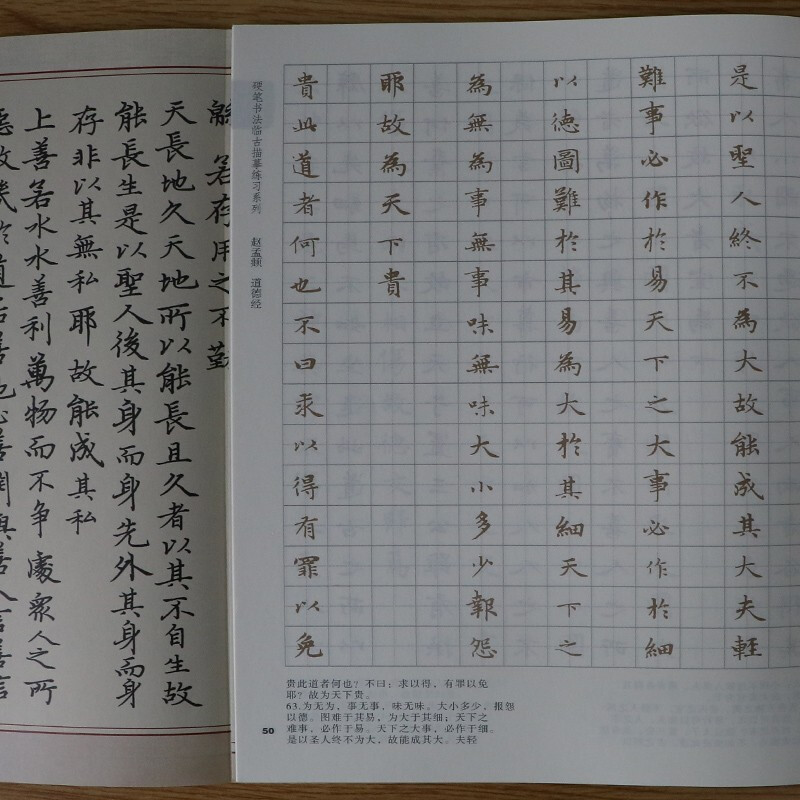 若存用之不勤
天長地久天地所以能長且久者以其不自生故
能長生是以聖人後其身而身先外其身而身
存非以其無私耶故能成其私
上善若水水善利萬物而不爭處眾人之所
硬笔书法临古描摹练习系列 赵孟頫 道德经
貴此道者何也不曰求以得有罪以免
耶故為天下貴
為無為事無事味無味大小多少報怨
以德圖難於其易為大於其細天下之
難事必作於易天下之大事必作於細
是以聖人終不為大故能成其大夫輕
贵此道者何也?不曰:求以得,有罪以免
耶?故为天下贵。
63.为无为,事无事,味无味。大小多少,报怨
以德。图难于其易,为大于其细;天下之
难事,必作于易。天下之大事,必作于细。
是以圣人终不为大,故能成其大。夫轻
50